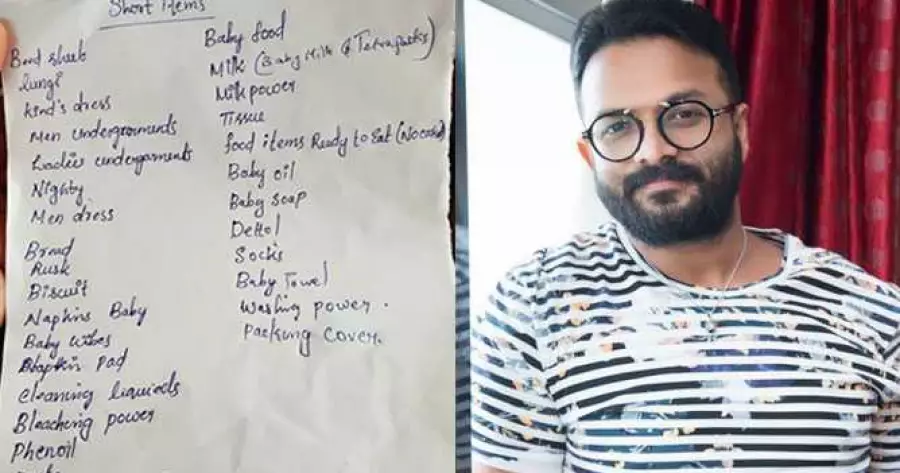 Short Items
Bed sheet
lungi
kind's dress
Men undergroments
Ladies undergarments
Nighty
Men dress
Bread
Rusk
Biscuit
Napkins Baby
Baby wibes
Napkin Pad
Cleaning liquieds
Bleaching power
Phenoil
Baby food
Milk (Baby Milk & Tetrapacks)
Milk power
Tissue
food items Ready to Eat
Baby oil
Baby soap
Dettol
Socks
Baby Towel
Washing power.
Packing cover.